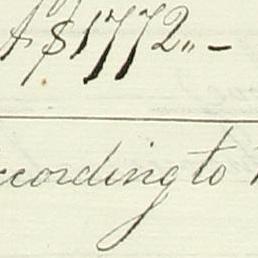 $1772"–
ccording to